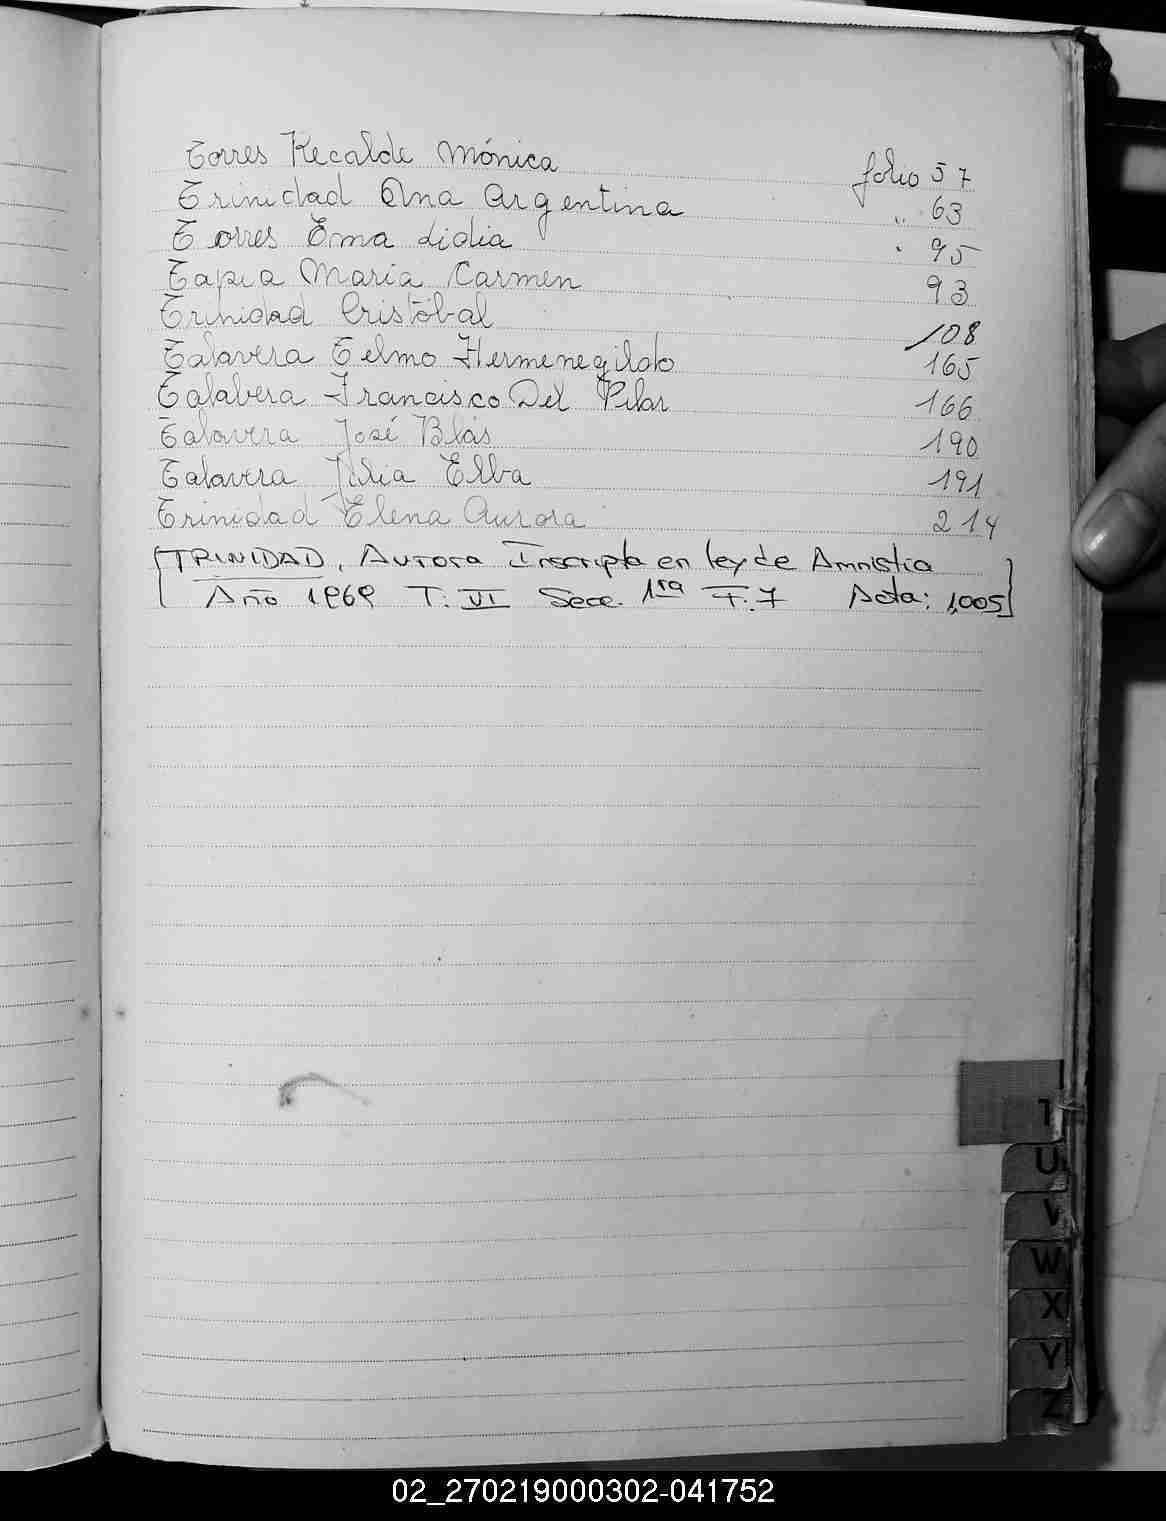 Torres Recalde Mónica folio 57
Trinidad Ana Argentina " 63
Torres Ema Lidia " 95
Tapia Maria Carmen 93
Trinidad Cristóbal 108
Talavera Telmo Hermenegildo 165
Talabera Francisco Del Pilar 166
Talavera José Blás 190
Talavera Julia Elba 191
Trinidad Elena Aurora 214
[TRINIDAD, Aurora Inscripta en ley de Amnistia
Año 1969 T. VI Secc. 1ra F. 7 Acta: 1,005]
T
U
V
W
X
Y
Z
02_270219000302-041752